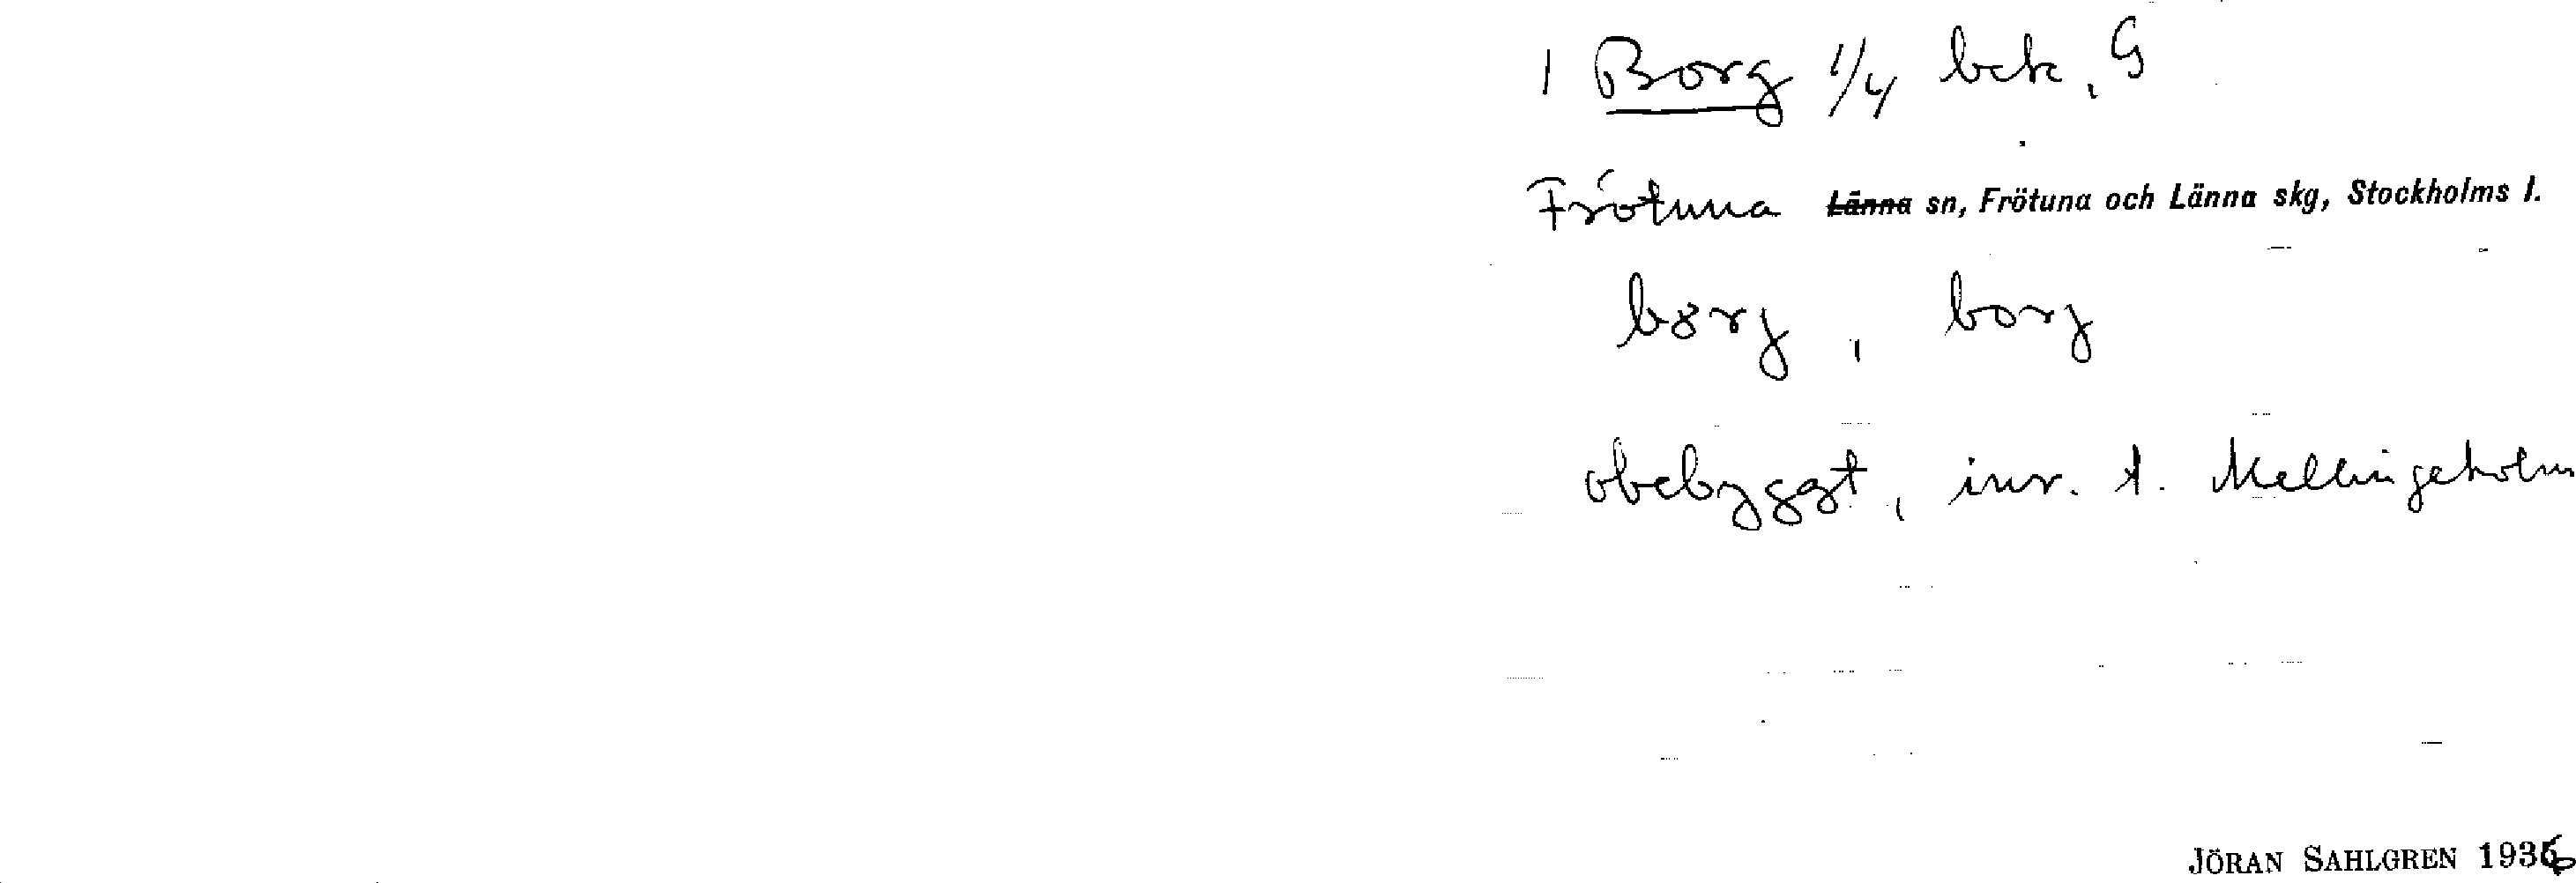 1 Borg 1/4 bek, G
Frötuna Länna sn, Frötuna och Länna skg, Stockholms l.
bȣrg, borg
obebyggt, inr. t. Mellingeholm
JÖRAN SAHLGREN 1936